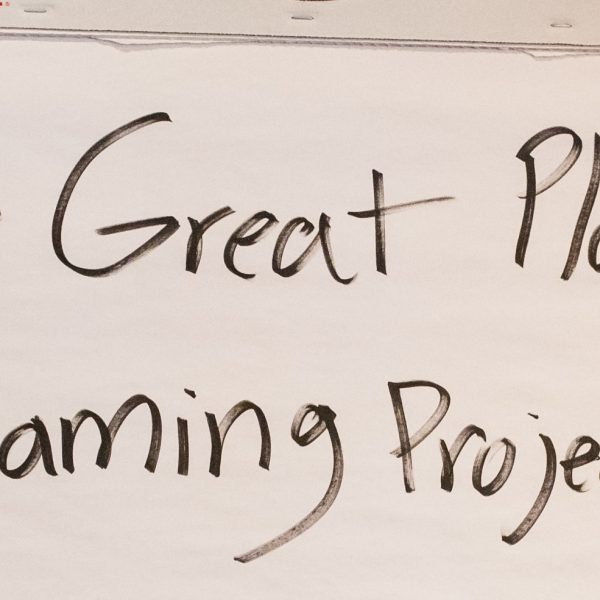 Great Pla
aming Proje